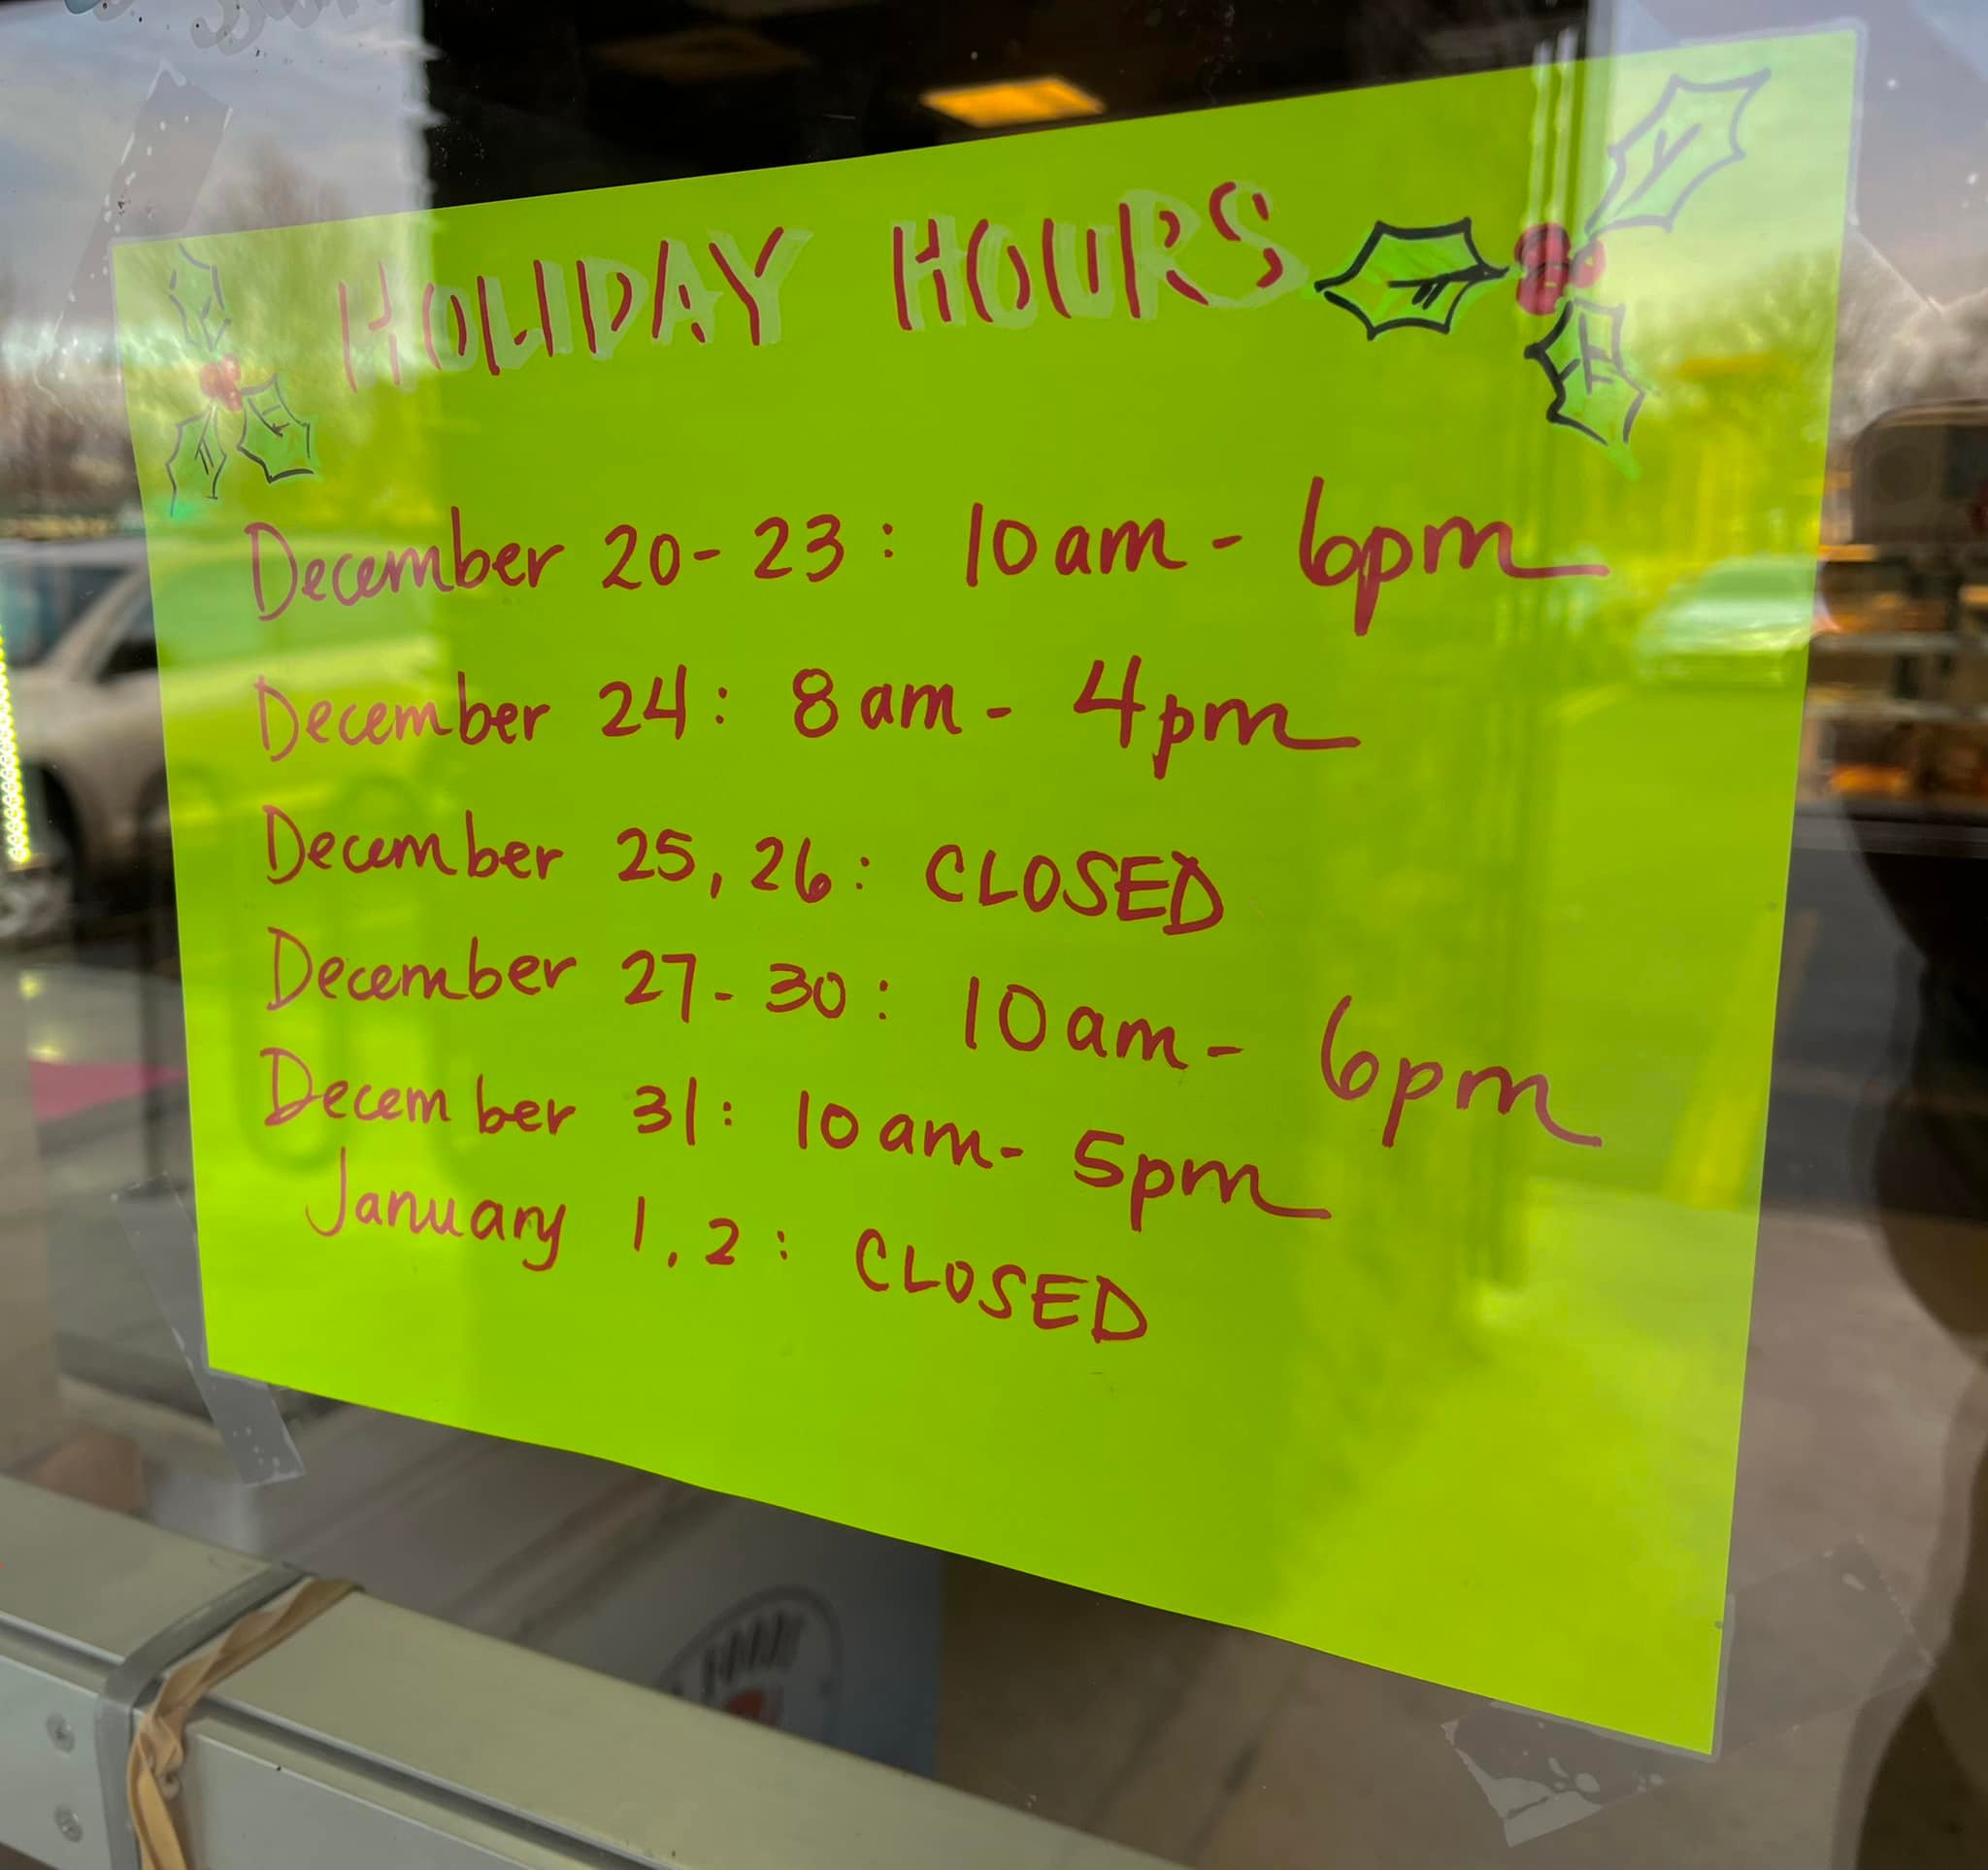 HOLIDAY HOURS
December 20-23: 10am - 6pm
December 24: 8am - 4pm
December 25, 26: CLOSED
December 27-30: 10am - 6pm
December 31: 10am - 5pm
January 1, 2: CLOSED